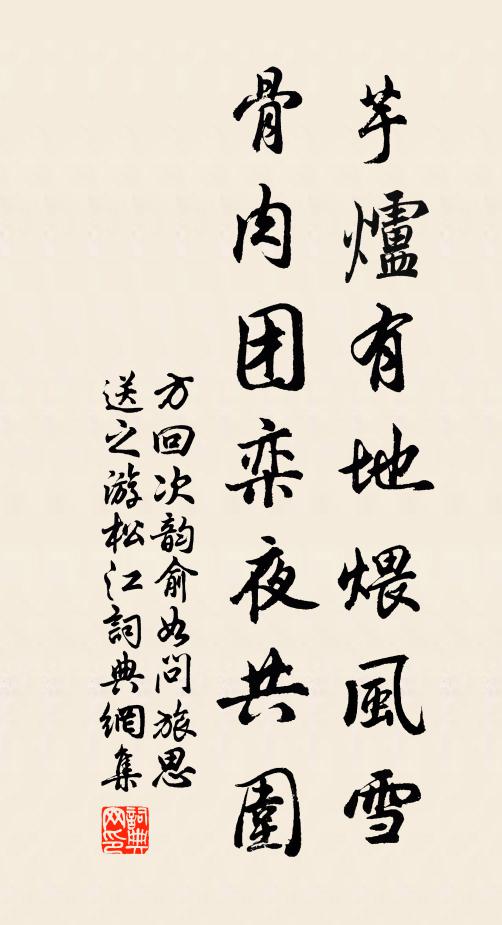 芋爐有地煨風雪
骨肉团栾夜共圍
方回次韵俞好问旅思
送之游松江詞典網集
詞典
网印